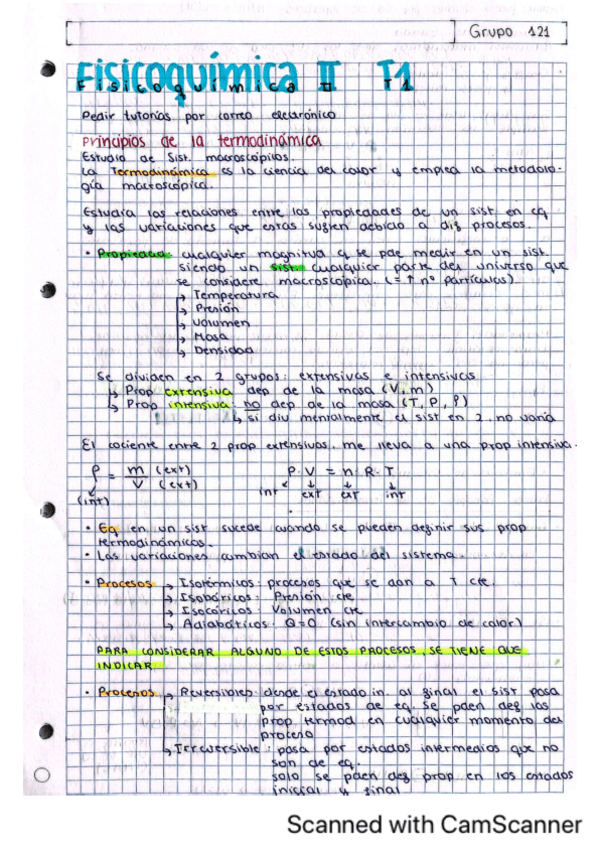 Grupo 121
Fisicoquímica II T1
Pedir tutorías por correo electrónico
Principios de la termodinámica
Estudio de Sist. macroscópicos.
La Termodinámica es la ciencia del calor y emplea la metodolo-
gía macroscópica.
Estudia las relaciones entre las propiedades de un sist. en eq
y las variaciones que estas sufren debido a dif procesos.
• Propiedad: cualquier magnitud q se pde medir en un sist.
siendo un sist. cualquier parte del universo que
se considere macroscópica. (= ↑ nº partículas)
↳ Temperatura
↳ Presión
↳ Volumen
↳ Masa
↳ Densidad
Se dividen en 2 grupos: extensivas e intensivas
↳ Prop extensiva dep de la masa (V, m)
↳ Prop intensiva: no dep de la masa (T, P, ρ)
↳ si div mentalmente el sist en 2, no varía
El cociente entre 2 prop extensivas, me lleva a una prop intensiva.
ρ = m (ext) / V (ext) P · V = n · R · T
(int) int ext ext int
• Eq en un sist sucede cuando se pueden definir sus prop
termodinámicas.
• Las variaciones cambian el estado del sistema.
• Procesos ↳ Isotérmicos: procesos que se dan a T cte.
↳ Isobáricos: Presión cte
↳ Isocóricos: Volumen cte
↳ Adiabáticos: Q=0 (sin intercambio de calor)
PARA CONSIDERAR ALGUNO DE ESTOS PROCESOS, SE TIENE QUE
INDICAR
• Procesos ↳ Reversibles: desde el estado in. al final el sist pasa
por estados de eq. Se pden def las
prop termod en cualquier momento del
proceso
↳ Irreversible: pasa por estados intermedios que no
son de eq.
solo se pden def prop en los estados
inicial y final
Scanned with CamScanner